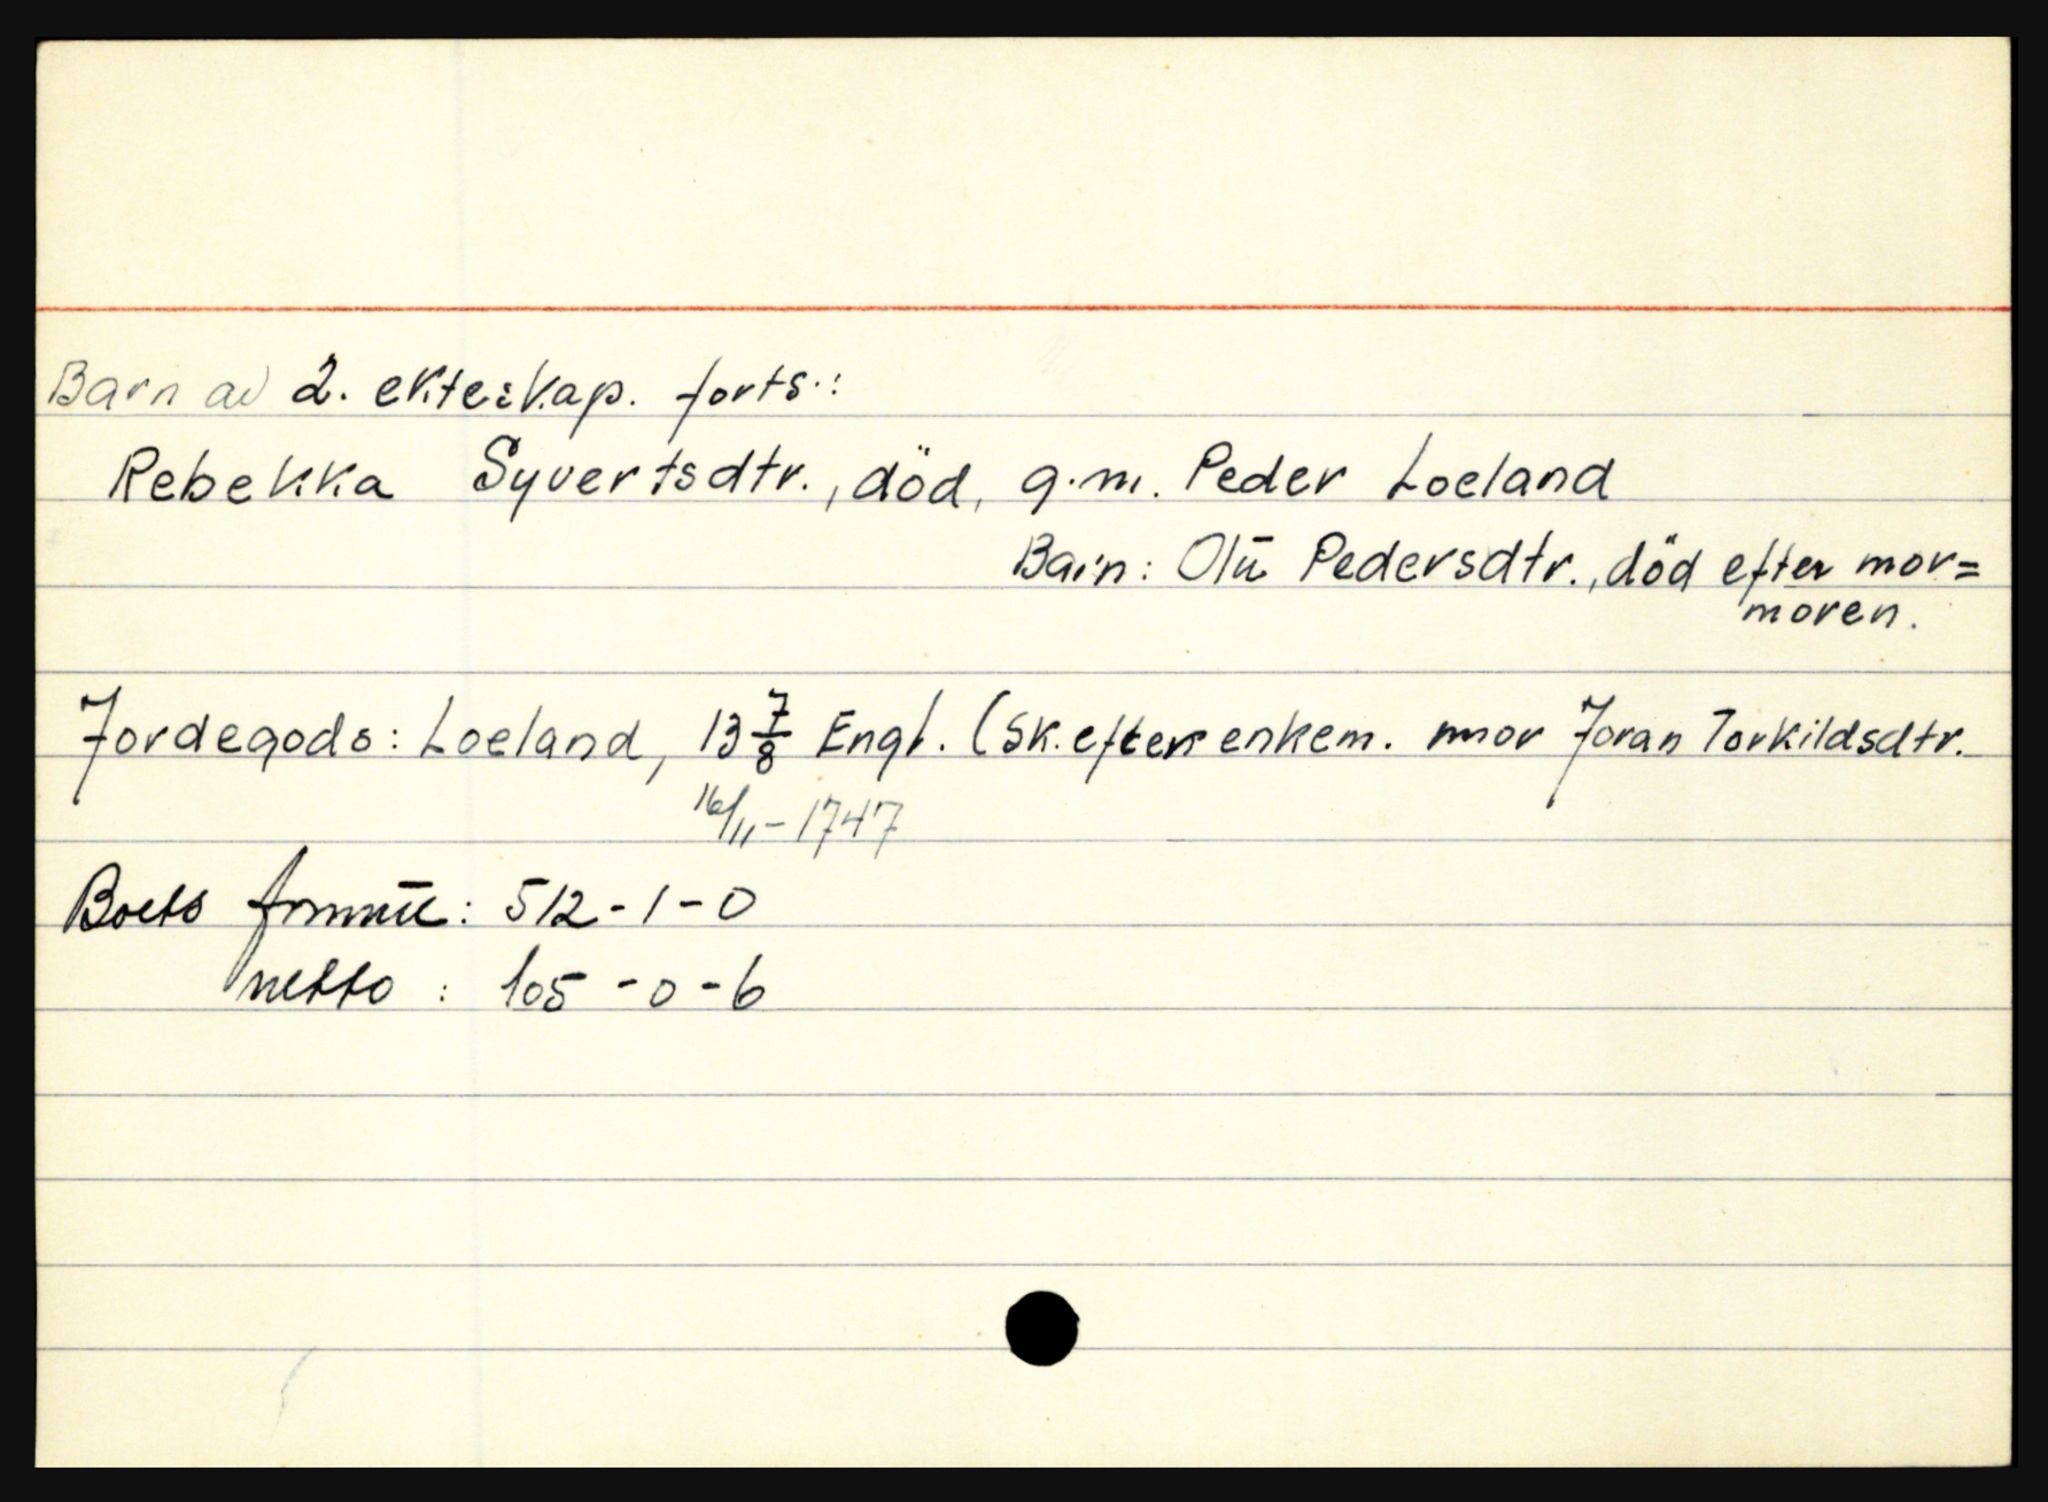 Barn av 2. ekteskap. forts.:
Rebekka Syvertsdtr., död, g.m. Peder Loeland
Barn: Olu Pedersdtr., död efter mor=
moren.
Jordegods: Loeland, 13 7/8 Engl. (Sk. efter enkem. mor Joran Torkildsdtr.
16/11 - 1747
Boets : 512 - 1 - 0
netto : 105 - 0 - 6